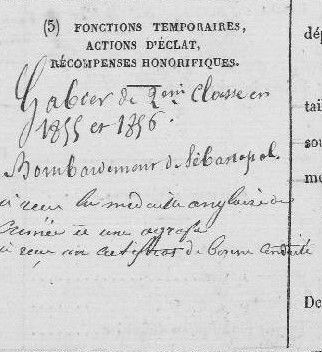 (5) FONCTIONS TEMPORAIRES,
ACTIONS D'ÉCLAT,
RÉCOMPENSES HONORIFIQUES.
Gabier de 2eme Classe en
1855 et 1856.
Bombardement de Sébastopol.
reçu la médaille anglaise de
Crimée et une agrafe
reçu un certificat de bonne conduite
dé
tai
sou
me
De